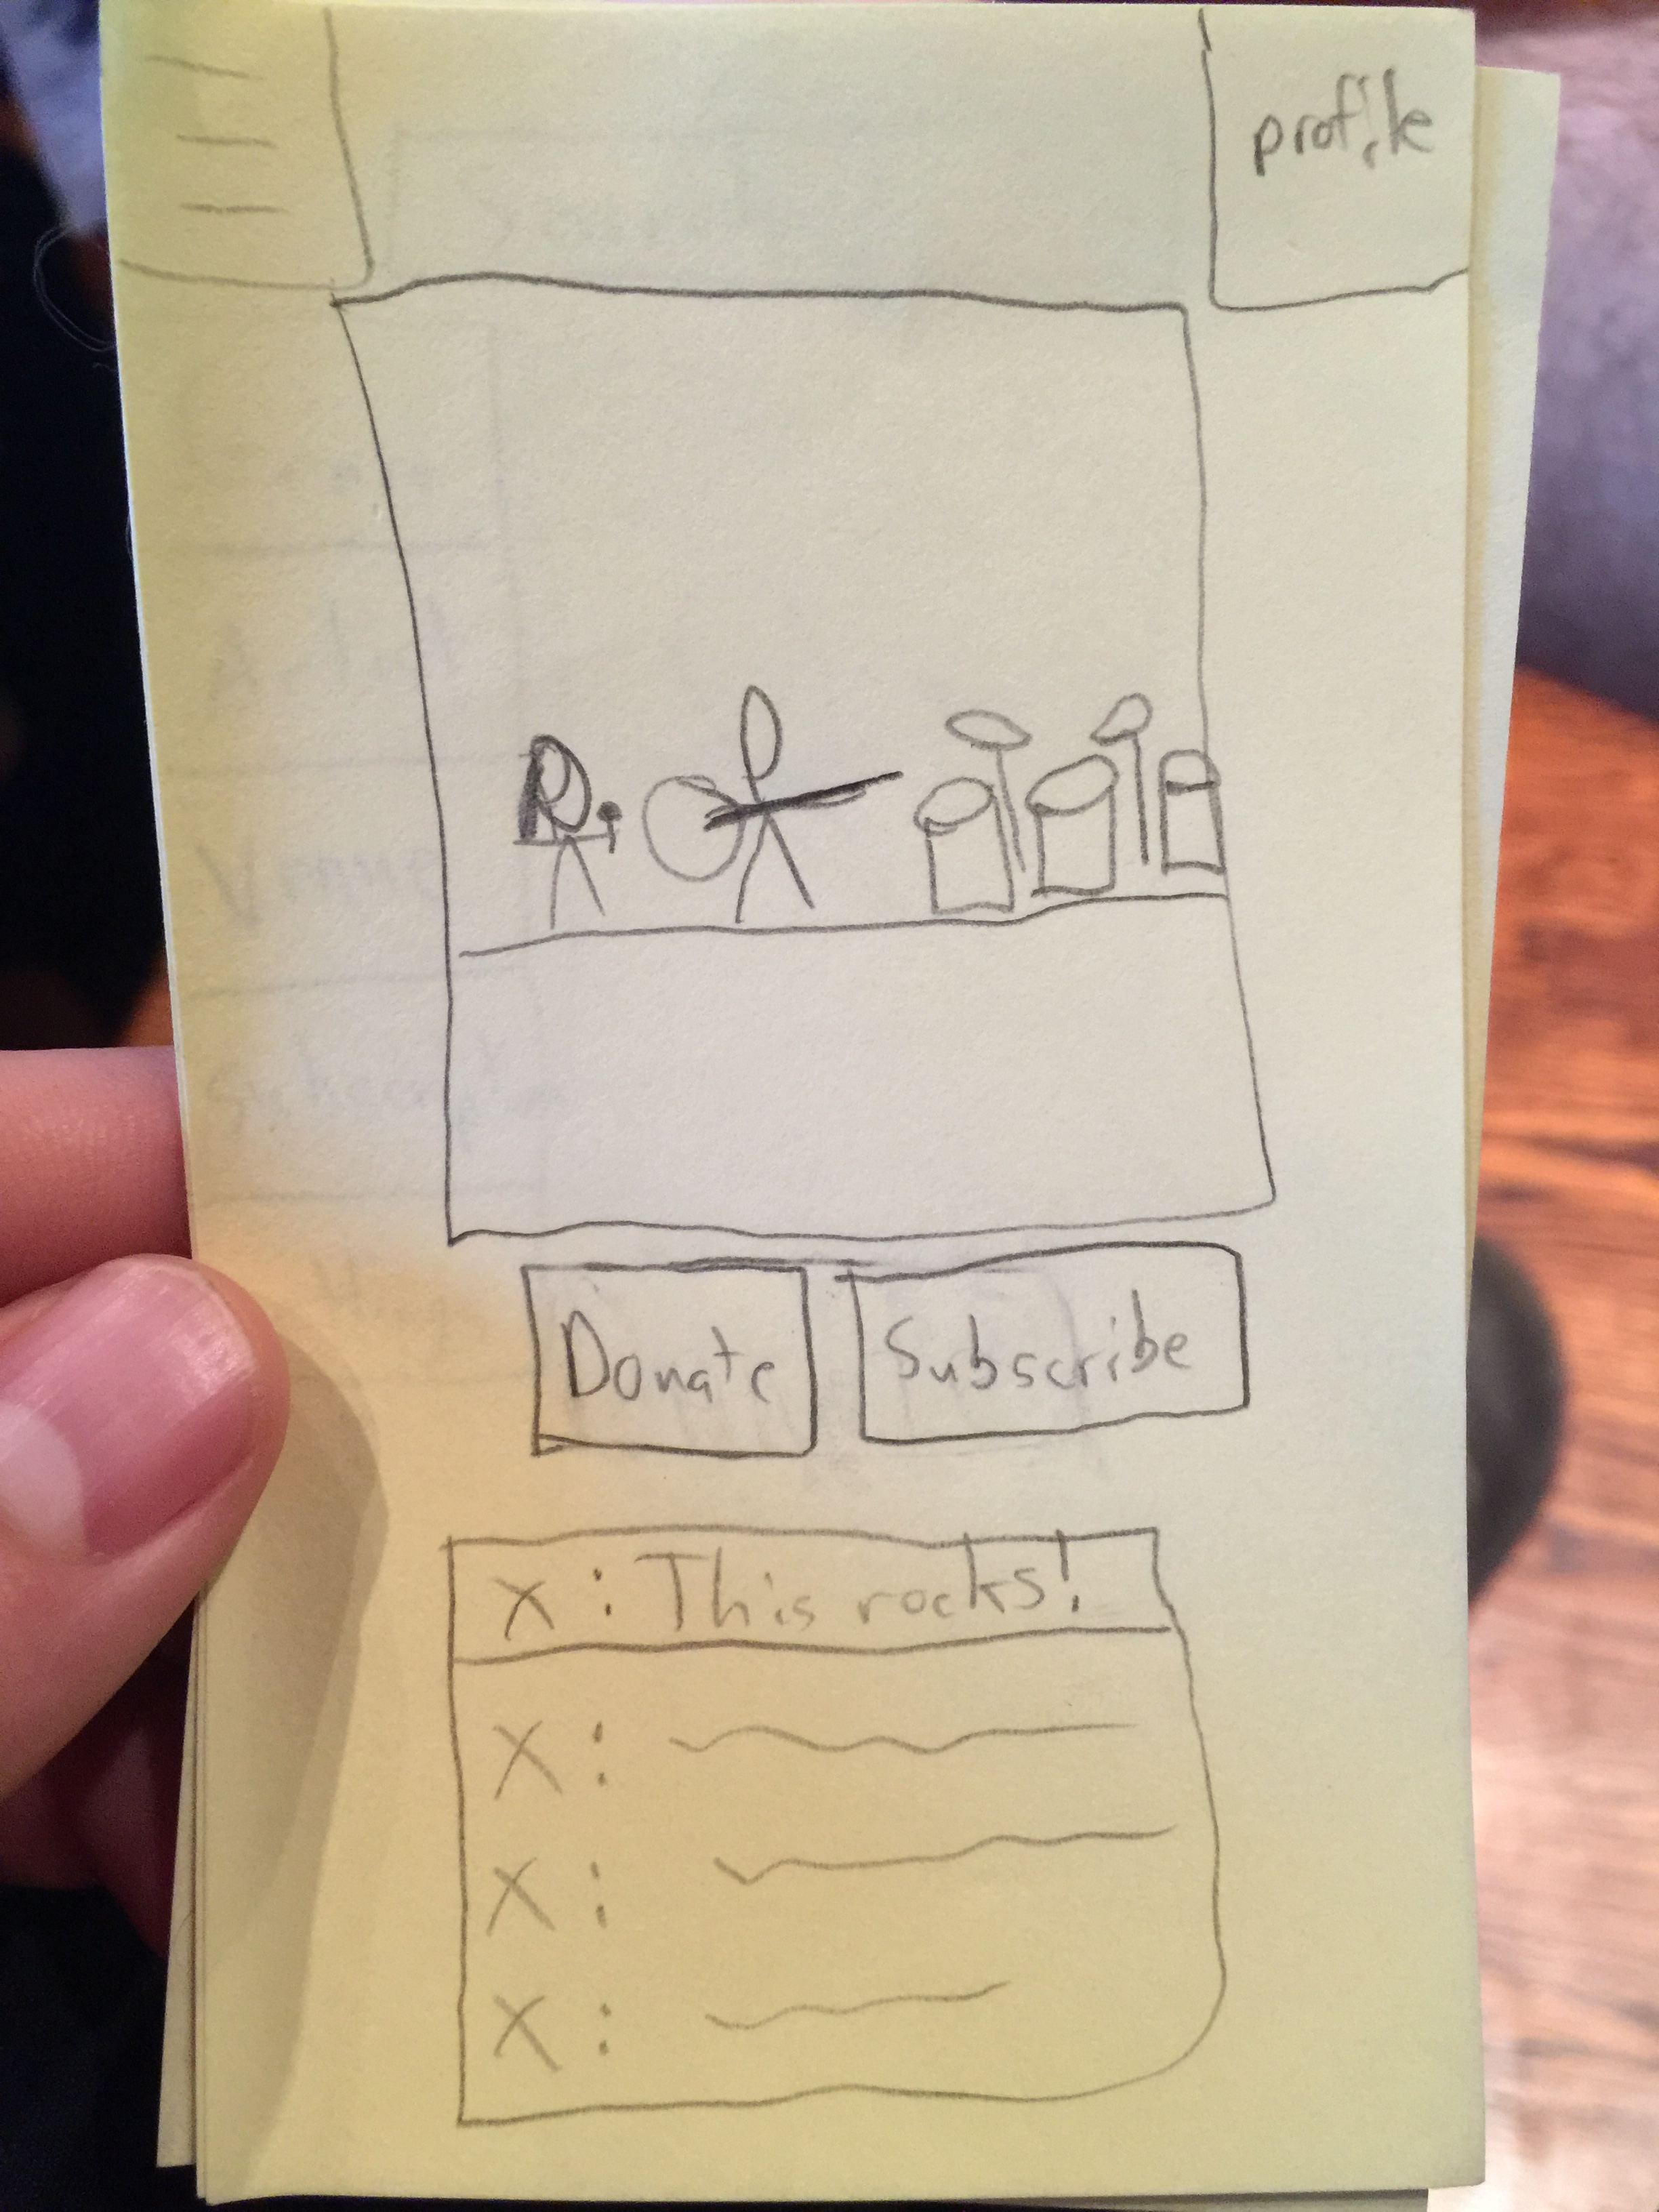 profile
Donate Subscribe
X : This rocks!
X :
X :
X :